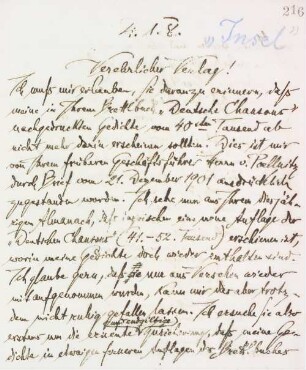 216
4.1.8.
"Insel"
Verehrlicher Verlag!
Ich muß mir erlauben, Sie daran zu erinnern, daß
meine in Ihrem Brettlbuch „Deutsche Chansons"
nachgedruckten Gedichte vom 40sten Tausend ab
nicht mehr darin erscheinen sollten. Dies ist mir
von Ihrem früheren Geschäftsführer Herrn v. Poellnitz
durch Brief vom 21. Dezember 1901 ausdrücklich
zugestanden worden. Ich sehe nun aus Ihrem diesjäh-
rigen Almanach, daß inzwischen eine neue Auflage der
„Deutschen Chansons" (41.-52. Tausend) erschienen ist
worin meine Gedichte doch wieder enthalten sind.
Ich glaube gern, daß sie nur aus Versehen wieder
mitaufgenommen wurden, kann mir das aber trotz-
dem nicht ruhig gefallen lassen. Ich ersuche Sie also
erstens um die erneute Zusicherung, daß meine Ge-
dichte in etwaigen ferneren Auflagen des Brettlbuches